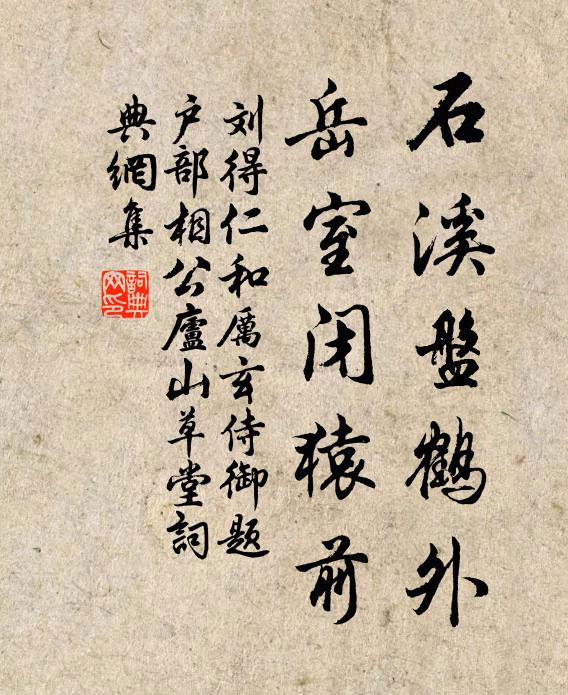 石溪盤鶴外
岳室闭猿前
刘得仁和厲玄侍御题
户部相公廬山草堂詞
典網集
詞典
网印